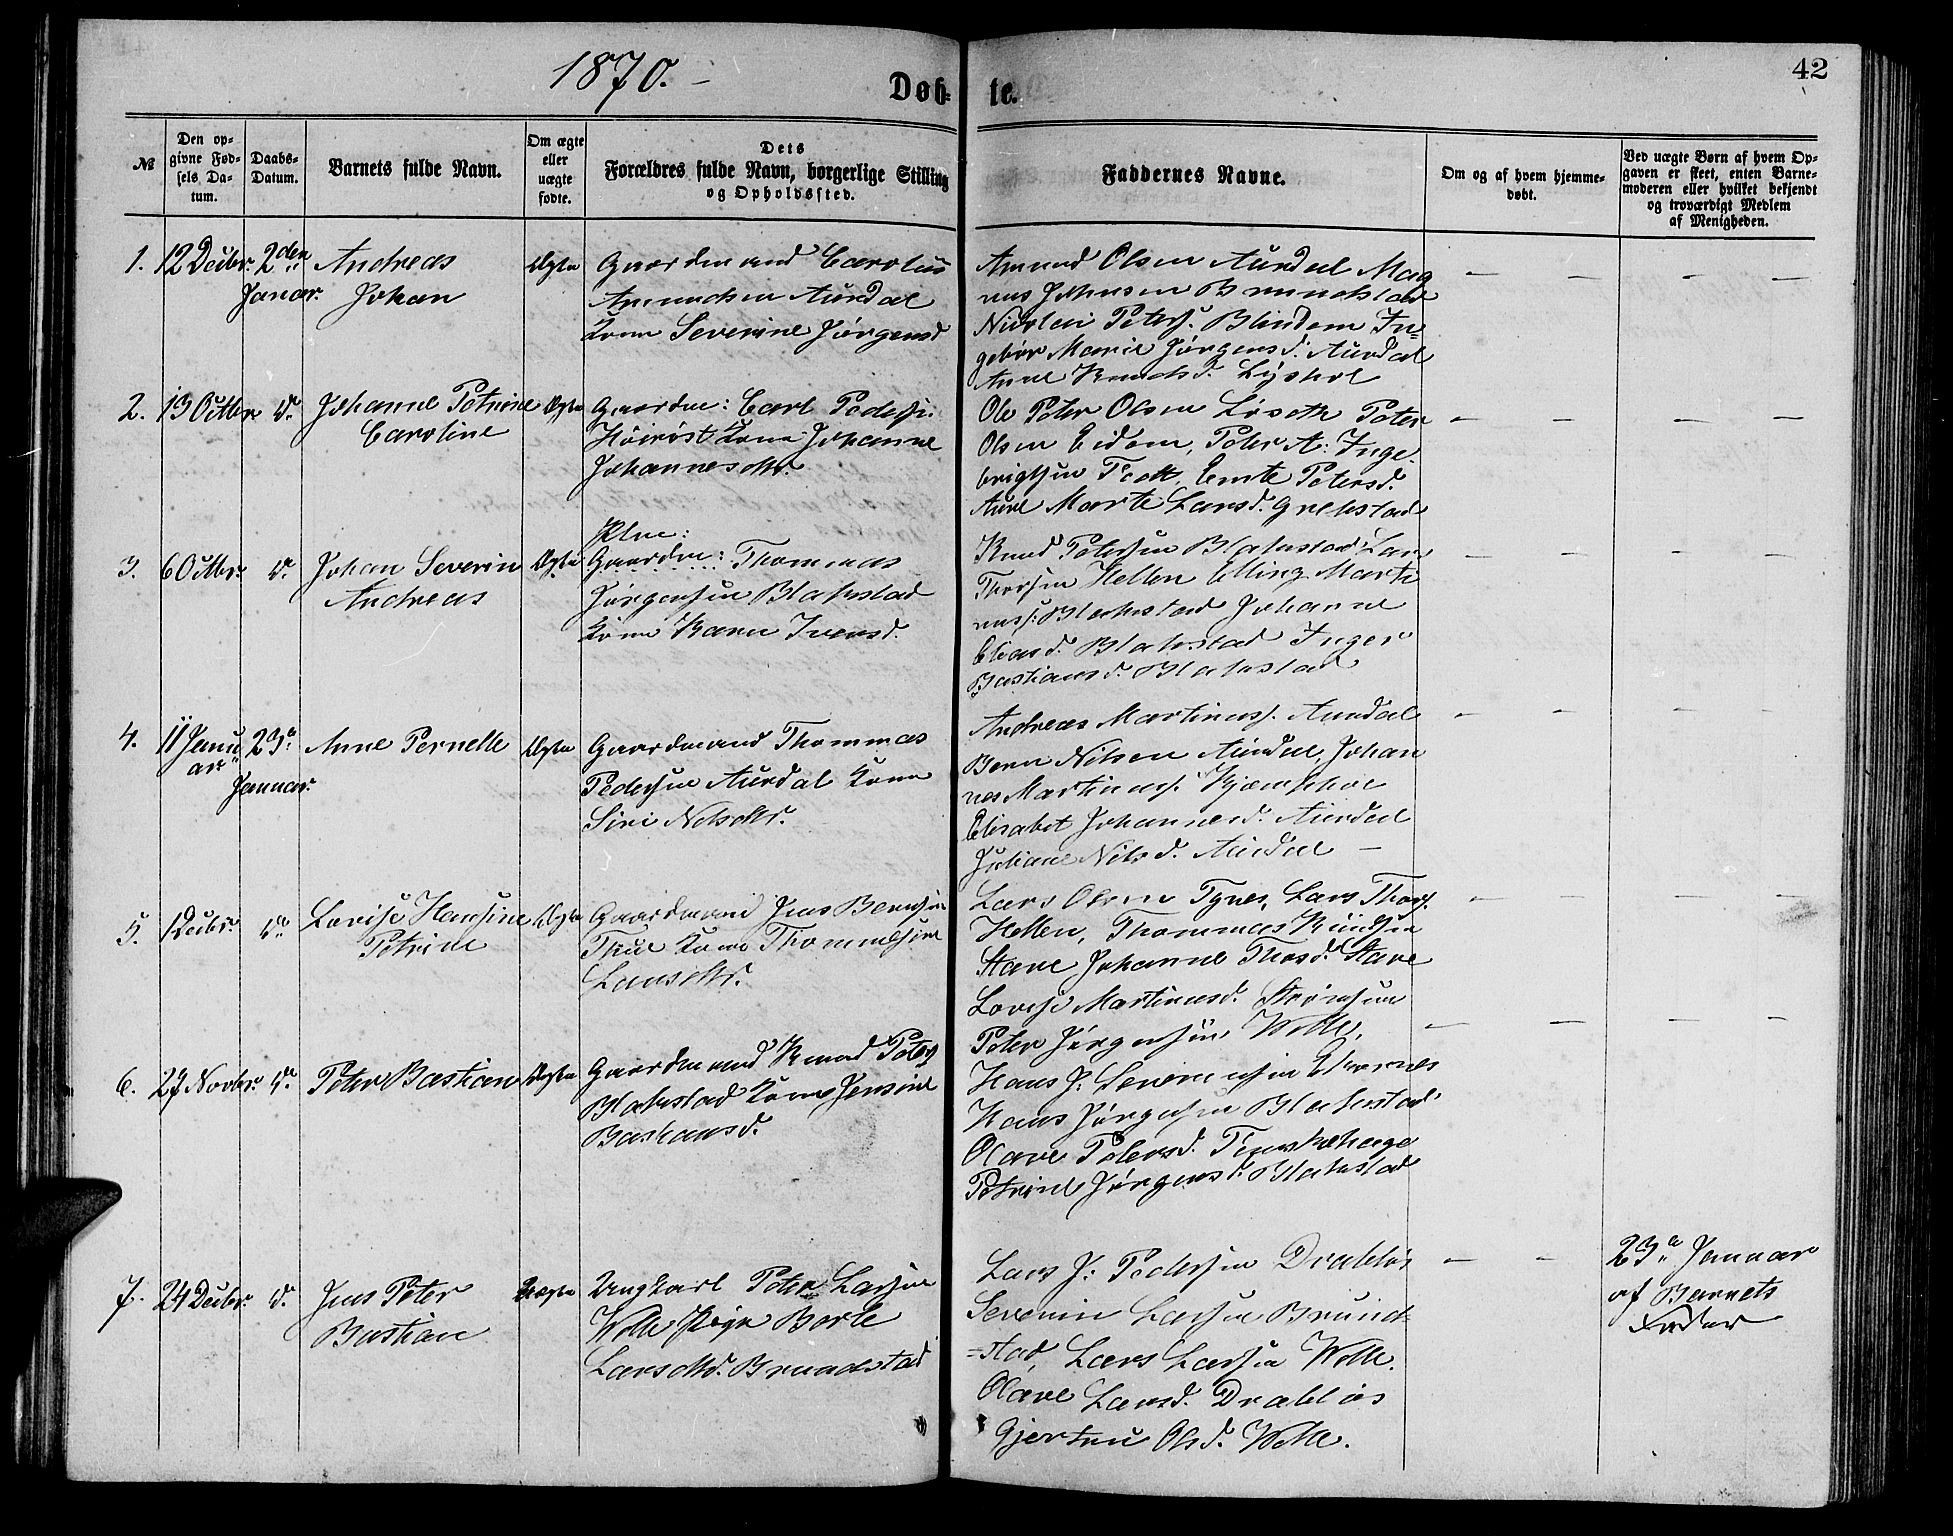 1870.
Døb-
te.
42
№
Den op-
givne Fød-
sels Da-
tum.
Daabs-
Datum.
Barnets fulde Navn.
Om ægte
eller
uægte
fødte.
Dets
Forældres fulde Navn, borgerlige Stilling
og Opholdssted.
Faddernes Navne.
Om og af hvem hjemme-
døbt.
Ved uægte Børn af hvem Op-
gaven er skeet, enten Barne-
moderen eller hvilket bekjendt
og troværdigt Medlem
af Menigheden.
1. 12 Decbr. 2den
Januar.
Andreas
Johan
Ægte
Gaardmand Carolus
Amundsen Aurdal
Kone Severine Jörgensd
Amund Olsen Aurdal Mag
nus Johnsen Brunestad
Nicolai Peters. Blindem In=
gebor Marie Jörgensd. Aurdal
Anne Knudsd. Lyshol
2. 13 Octbr. do.
Johanne Petrine
Caroline
Ægte
Gaardm: Carl Peders.
Kone Johanne
Johannesdtr.
Ole Peter Olsen Löseth Peter
Olsen Eidem, Peter A: Inge-
brigtsen Tedtt, Peters d.
Aure Marte Larsd. Grebstad
3. 6 Octbr. do.
Johan Severin
Andreas
Ægte
Gaardm: Thommas
Jörgensen Blakstad
Kone Karen Iversd.
Knud Petersen Blakstad Lars
Thorsen Hellen Elling Marti
nus. Blakstad Johanne
Eliasd. Blakstad Inger
Bastiansd. Blakstad
4. 11 Janu
ar
23de
Januar.
Anne Pernelle
Ægte
Gaardmand Thommas
Pedersen Aurdal Kone
Sivi Nelsdtr.
Andreas Martinus. Aurdal
Bern Nilsen Aurdal, Johan
nes Martinus. Kjæmphol
Elisabet Johannesd. Aurdal
Juliane Nilsd. Aurdal —
5. 1 Decbr. do
Lovise Hansine
Petrine
Ægte
Gaardmand Jens Bernsen
Thue Kone Thommesine
Larsdtr.
Lars Olsen Tynes, Lars Thors.
Hellen, Thommas Knudsen
Stave Johanne Thosd. Stave
Lovise Martinusd. Strömsem
6. 27 Novbr. do
Peter Bastian
Ægte
Gaardmand Knud Peters
Blakstad Kone Jensine
Bastiansd.
Peter Jörgensen, Welle,
Hans J: Severinsen Ekornes
Hans Jörgensen Blakstad
Olave Petersd.
Petrine Jörgensd. Blakstad
7. 24 Decbr. do.
Jens Peter
Bastian
Uægte
Ungkarl Peter Larsen
Welle Pige Berte
Larsdtr. Brunestad
Lars J: Pedersen Drabløs
Severin Larsen Brune=
=stad, Lars Larsen Welle.
Olave Larsd. Drabløs
Gjertru Olsd. Welle.
23de Januar
af Barnets
Fader